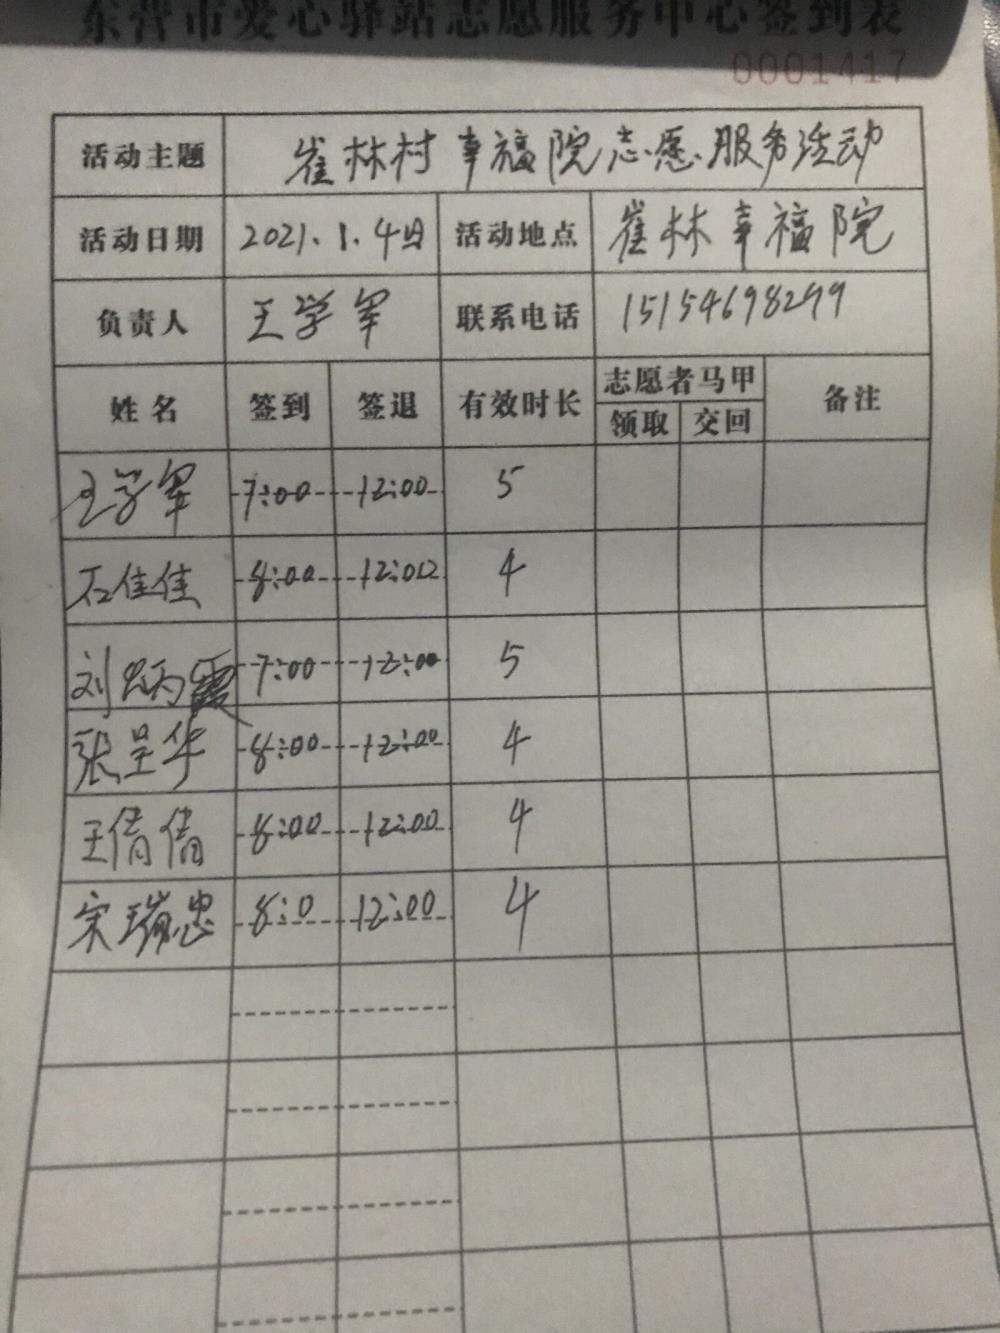 东营市爱心驿站志愿服务中心签到表
0001417
活动主题 崔林村幸福院志愿服务活动
活动日期 2021.1.4日 活动地点 崔林幸福院
负责人 王学军 联系电话 15154698299
姓名 签到 签退 有效时长 志愿者马甲 备注
领取 交回
王学军 7:00 12:00 5
石佳佳 8:00 12:00 4
刘炳霞 7:00 12:00 5
张呈华 8:00 12:00 4
王倩倩 8:00 12:00 4
宋瑞忠 8:0 12:00 4